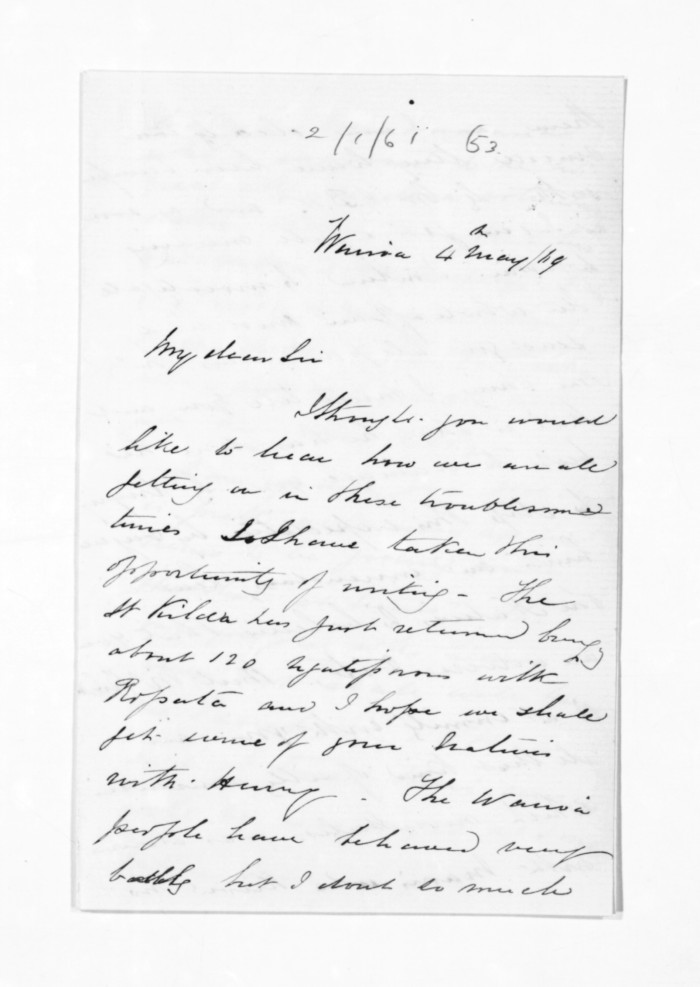 2/1/61 53
Wairoa 4th May/69
My dear Sir
I thought you would
like to hear how we are all
getting on in these troublesome
times So I have taken this
opportunity of writing - The
St Kilda has just returned bringg
about 120 Ngatiporous with
Ropata and I hope we shall
get some of your Natives
with Henry - The Wairoa
people have behaved very
badly but I dont so much